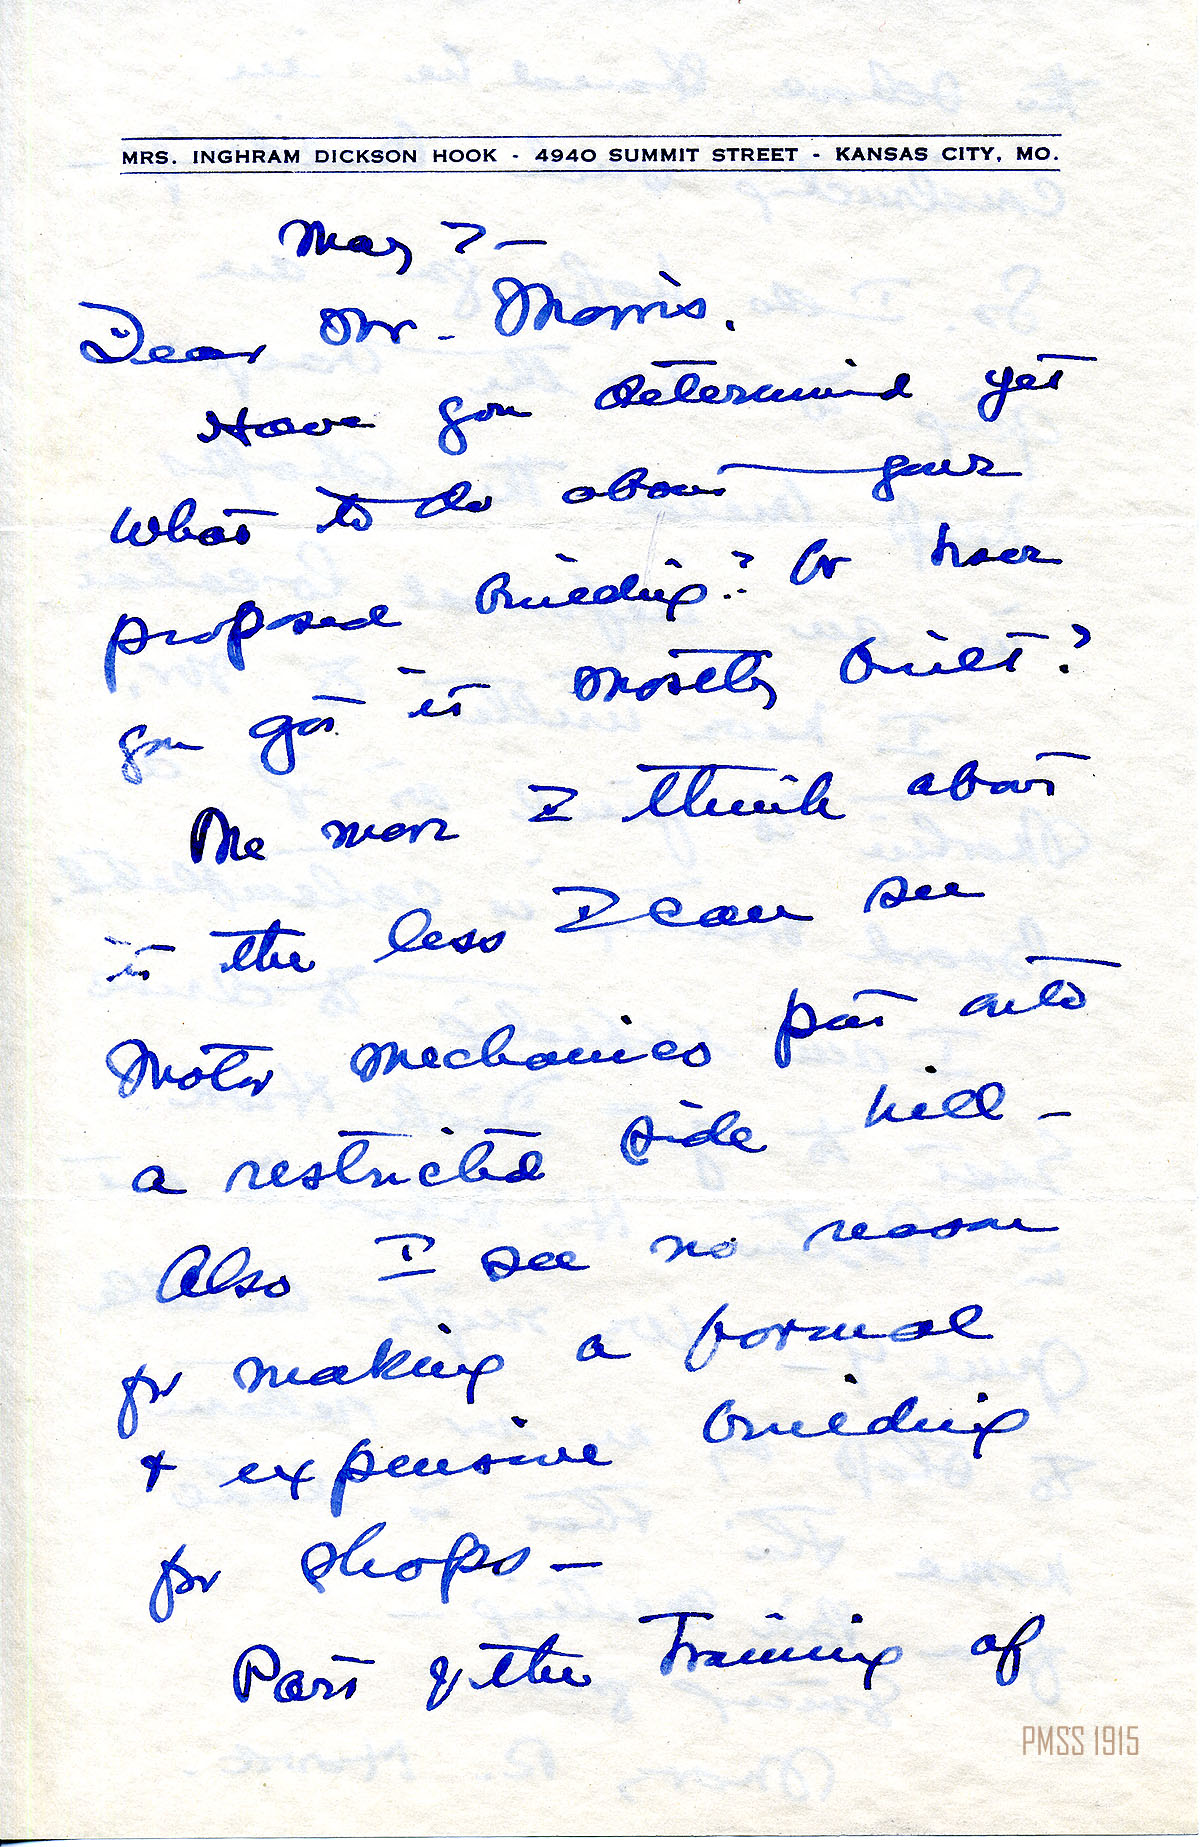 MRS. INGHRAM DICKSON HOOK - 4940 SUMMIT STREET - KANSAS CITY, MO.
May 7 —
Dear Mr. Morris.
Have you determined yet
what to do about your
proposed building? Or have
you got it mostly built?
The more I think about
it the less I can see
Motor Mechanics put onto
a restricted side hill —
Also I see no reason
for making a formal
& expensive building
for shops —
Part of the Training of
PMSS 1915